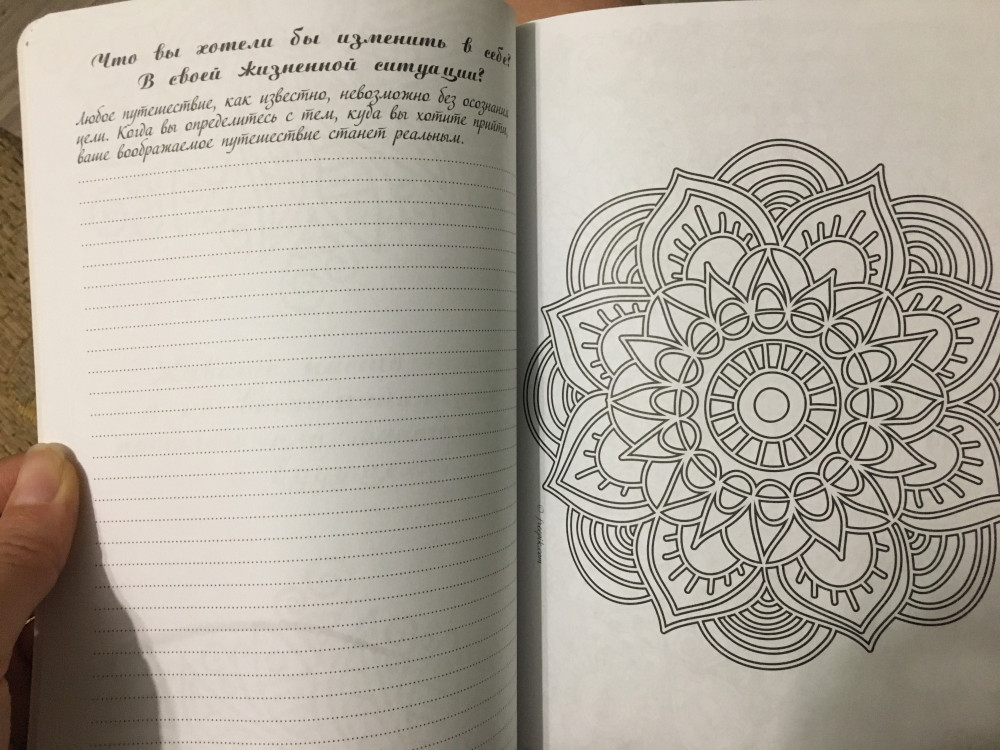 Что вы хотели бы изменить в себе?
В своей жизненной ситуации?
Любое путешествие, как известно, невозможно без осознания
цели. Когда вы определитесь с тем, куда вы хотите прийти,
ваше воображаемое путешествие станет реальным.